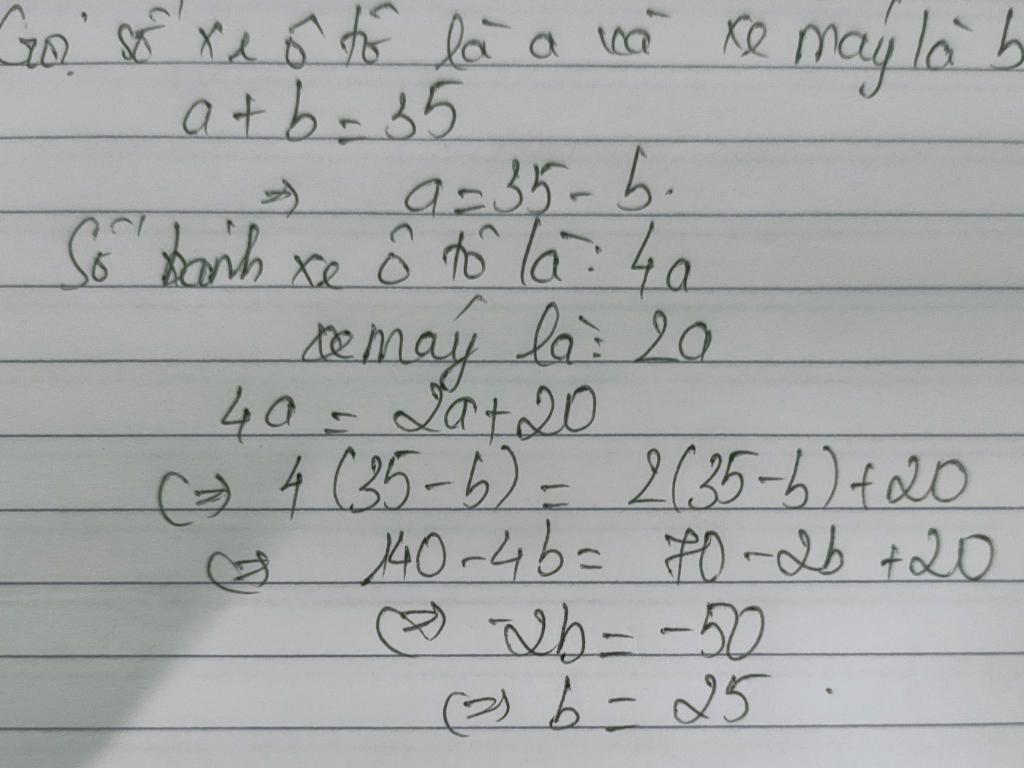 Gọi số xe ô tô là a và xe máy là b
a + b = 35
=> a = 35 - b.
Số bánh xe ô tô là: 4a
xe máy là: 2a
4a = 2a + 20
<=> 4(35 - b) = 2(35 - b) + 20
<=> 140 - 4b = 70 - 2b + 20
<=> -2b = -50
<=> b = 25.